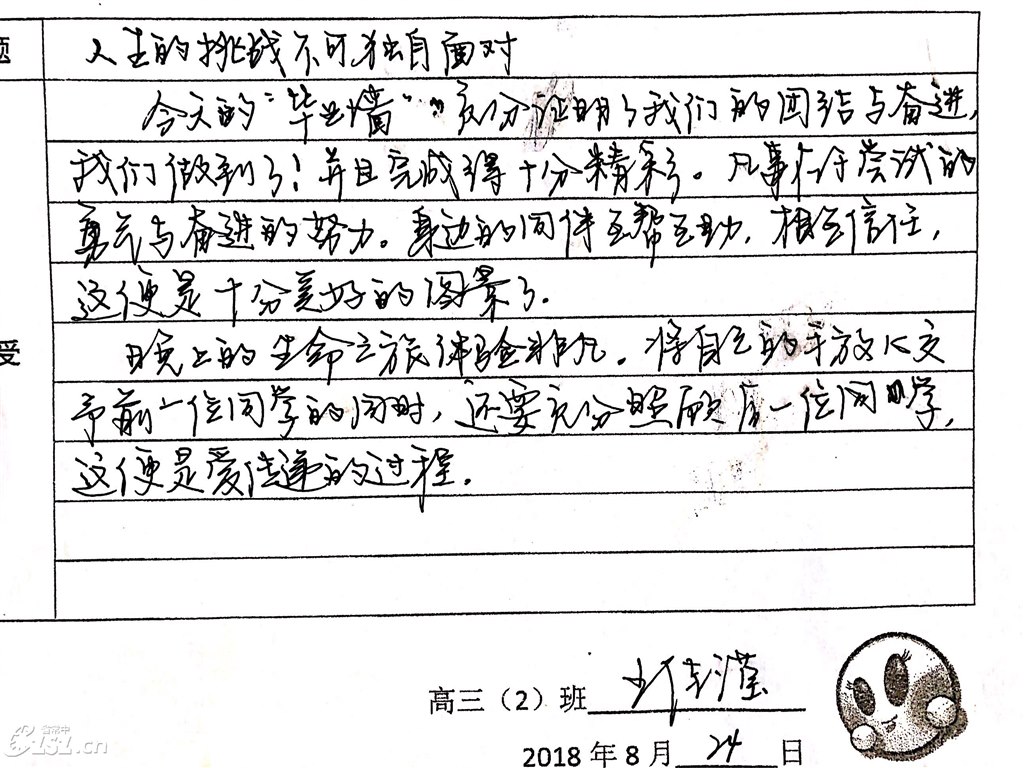 题 人生的挑战不可独自面对
今天的“毕业墙”充分证明了我们的团结与奋进,
我们做到了!并且完成得十分精彩。凡事在乎尝试的
勇气与奋进的努力。身边的同伴互帮互助,相互信任,
这便是十分美好的图景了。
受 晚上的生命之旅体验非凡。将自己的手放心交
予前一位同学的同时,还要充分照顾后一位同学,
这便是爱传递的过程。
高三(2)班
2018年8月24日